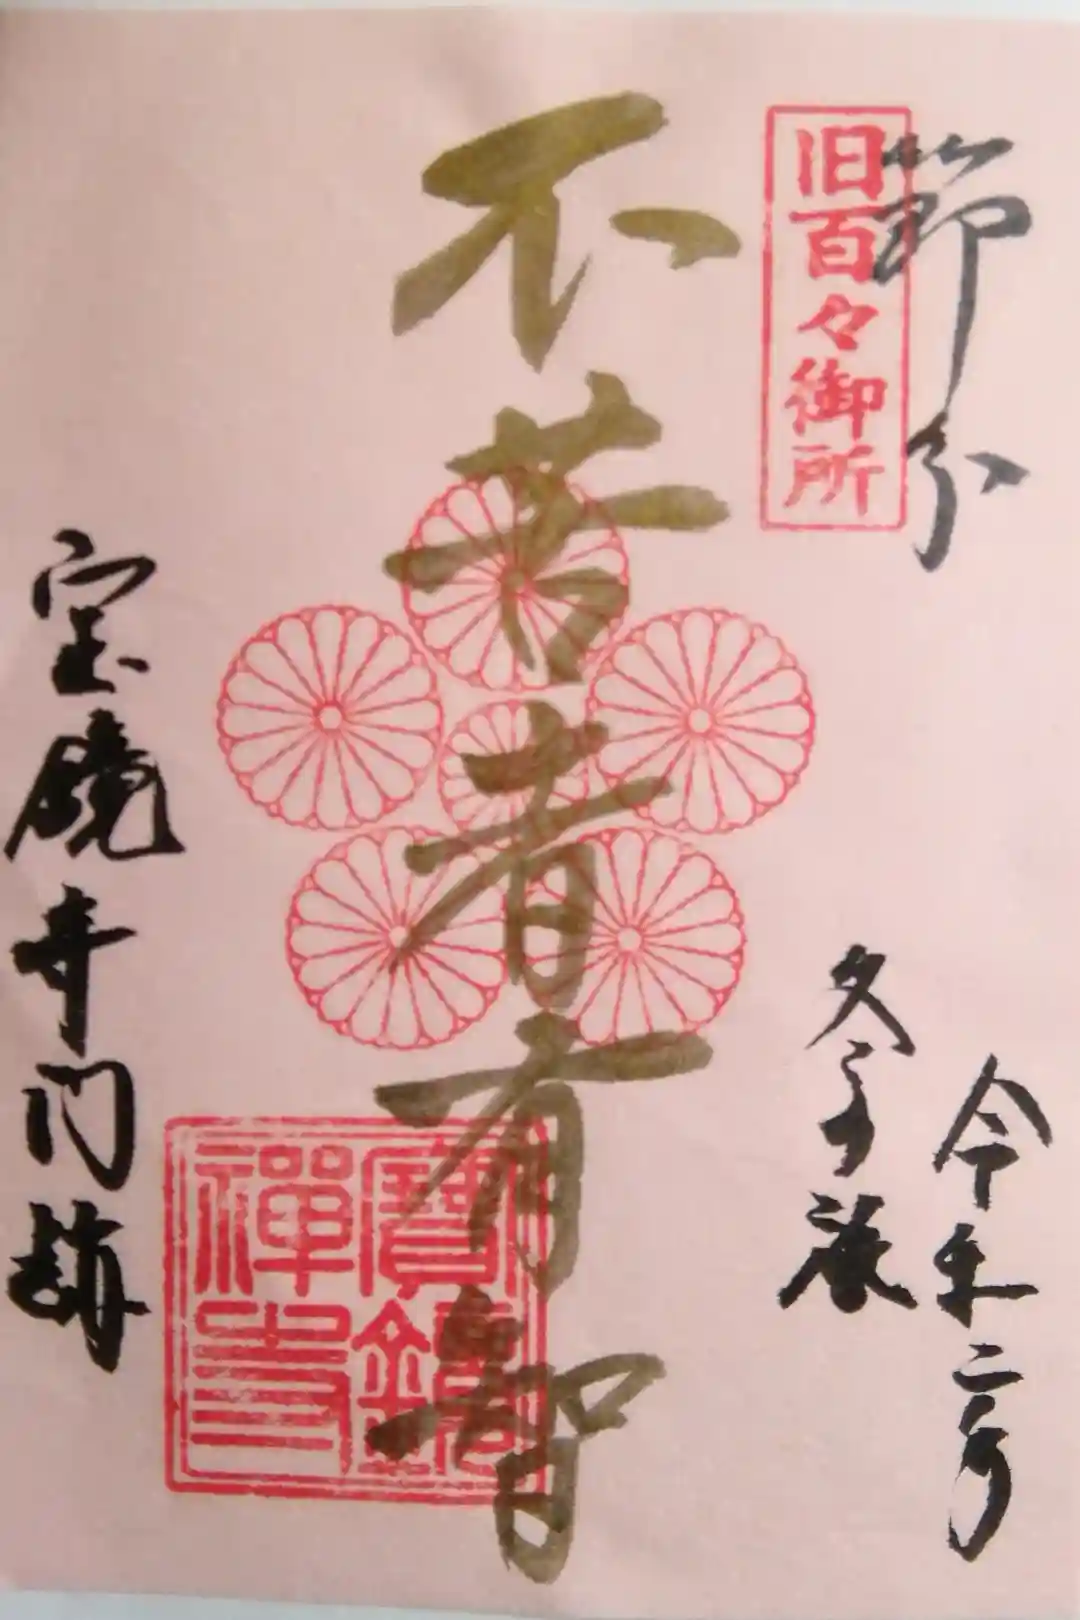 節分
旧百々御所
令和二年
冬の旅
不苦者有智
寶鏡
禅寺
宝鏡寺門跡